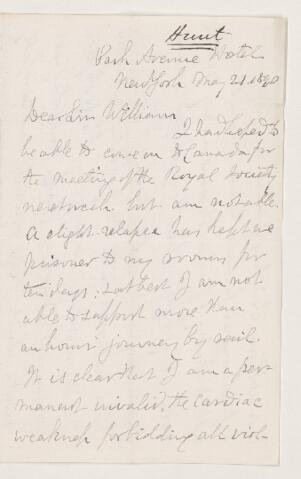 Hunt
Park Avenue Hotel
New York May 21. 1890
Dear Sir William
I had hoped to
be able to come on to Canada for
the meeting of the Royal Society
next week but am not able.
A slight relapse has kept me
prisoner to my rooms for
ten days; at best I am not
able to support more than
an hour's journey by rail.
It is clear that I am a per-
manent invalid, the cardiac
weakness forbidding all viol-